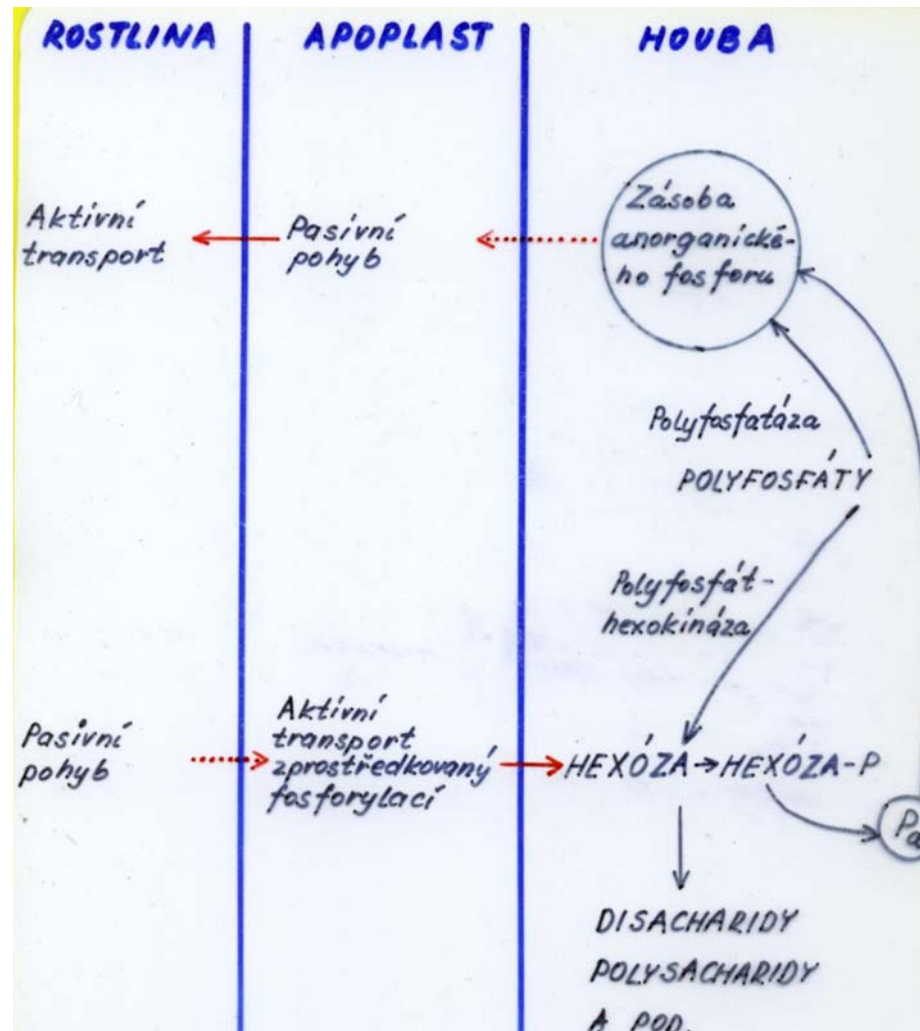 ROSTLINA
APOPLAST
HOUBA
Aktivní
transport
Pasivní
pohyb
Zásoba
anorganické-
ho fosforu
Polyfosfatáza
POLYFOSFÁTY
Polyfosfát-
hexokináza
Pasivní
pohyb
Aktivní
transport
zprostředkovaný
fosforylací
HEXÓZA → HEXÓZA-P
DISACHARIDY
POLYSACHARIDY
A POD.